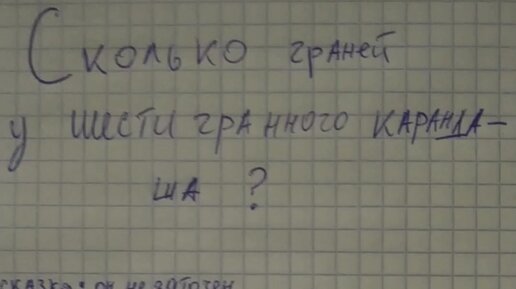 Сколько граней
у шести гранного каранда-
ша ?
сказка: он не заточен